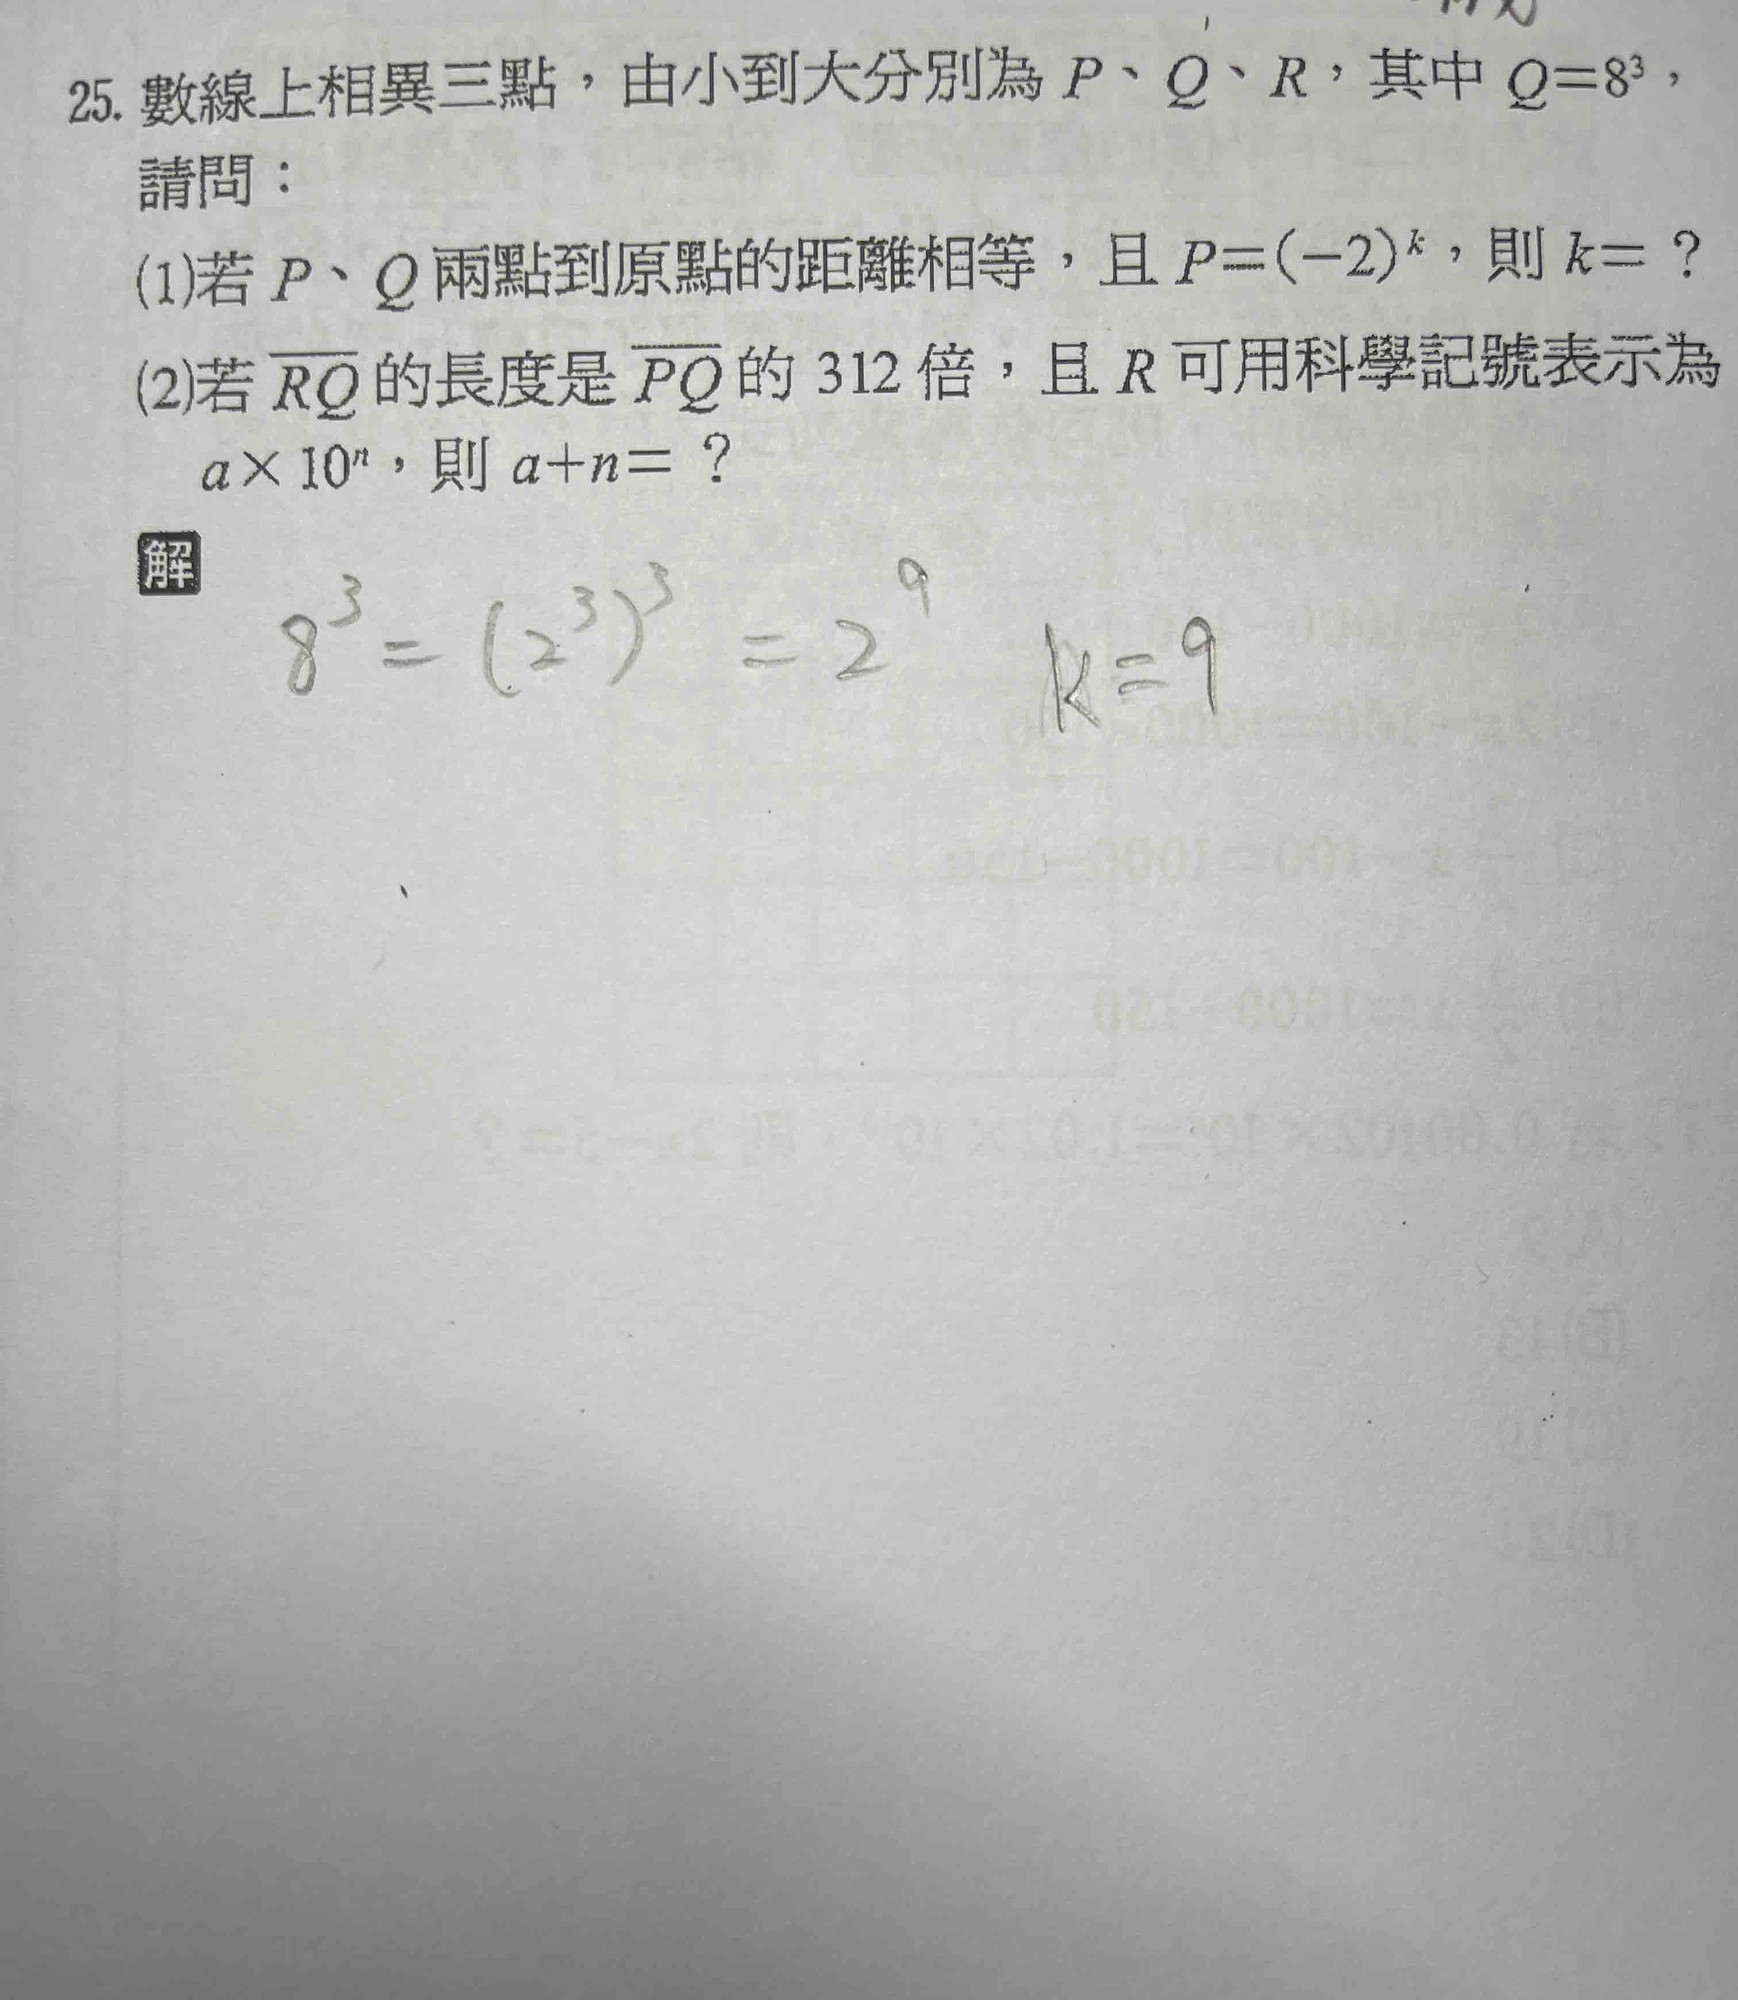 25. 數線上相異三點，由小到大分別為 P、Q、R，其中 Q=8³，
請問：
(1)若 P、Q 兩點到原點的距離相等，且 P=(−2)ᵏ，則 k=？
(2)若 R̅Q̅ 的長度是 P̅Q̅ 的 312 倍，且 R 可用科學記號表示為
a×10ⁿ，則 a+n=？
解
8³ = (2³)³ = 2⁹ k=9